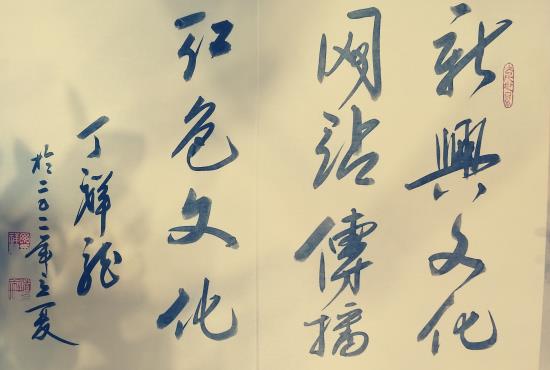 新興文化
网站傳播
红色文化
丁龍
於二〇二一年立夏